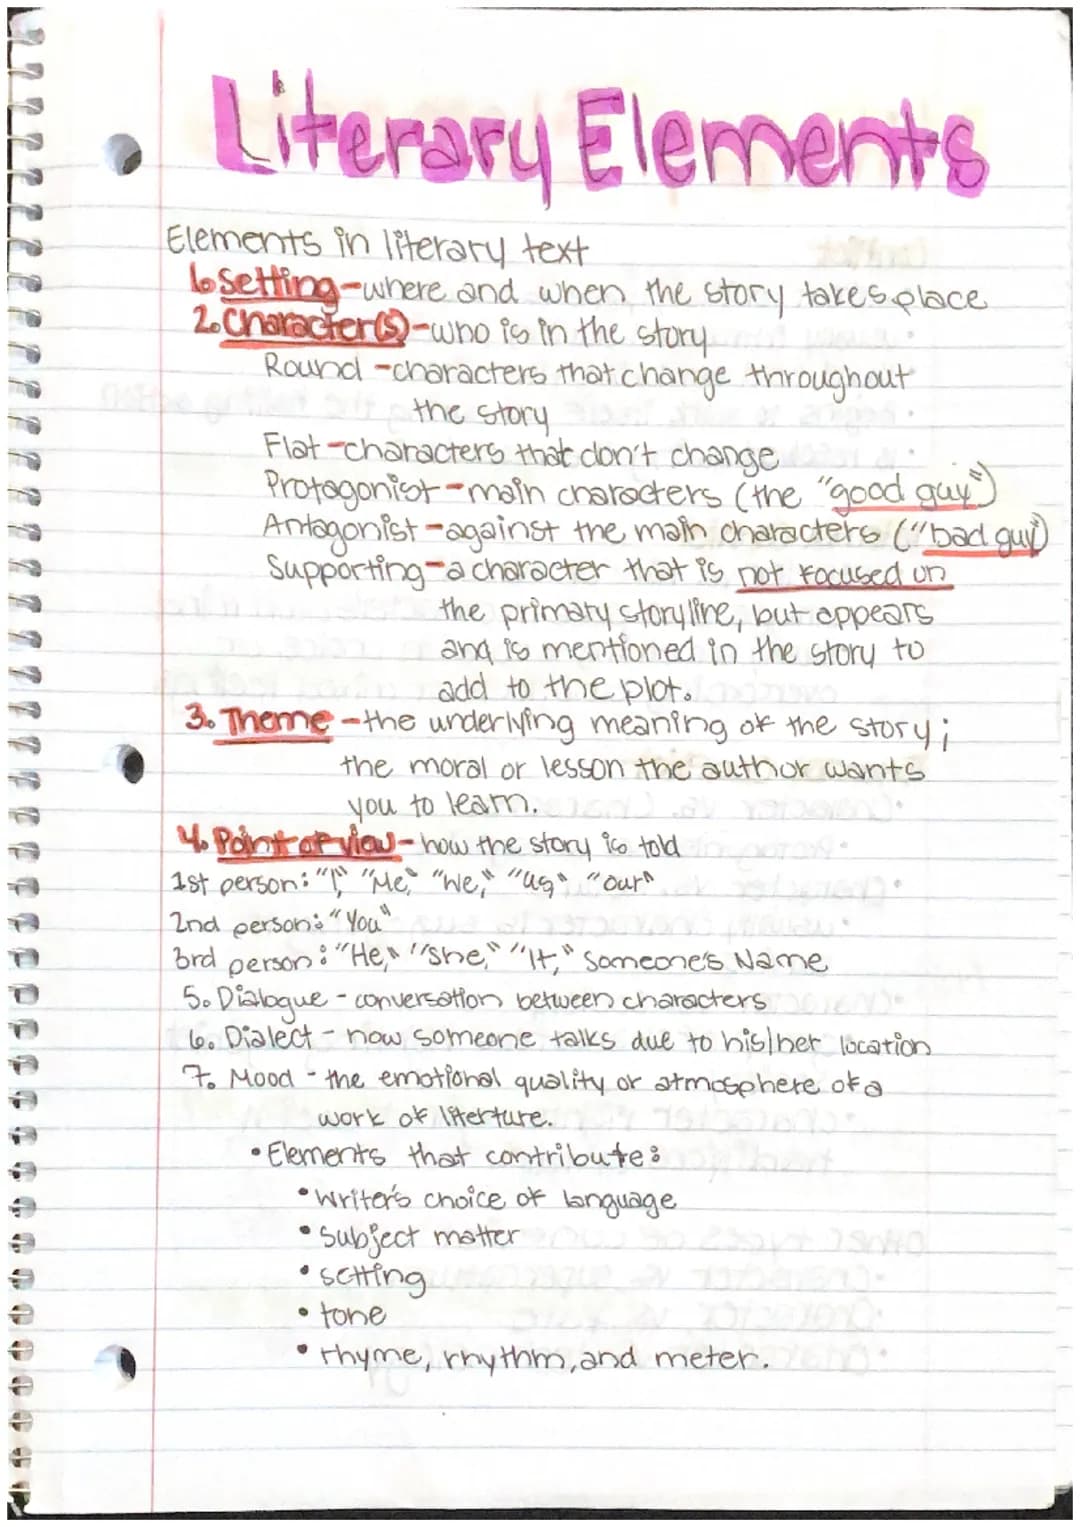 Literary Elements
Elements in literary text
1. Setting - where and when the story takes place
2. Character(s) - who is in the story
Round - characters that change throughout
the story
Flat - characters that don't change
Protagonist - main characters (the "good guy")
Antagonist - against the main characters ("bad guy")
Supporting - a character that is not focused on
the primary storyline, but appears
and is mentioned in the story to
add to the plot.
3. Theme - the underlying meaning of the story;
the moral or lesson the author wants
you to learn.
4. Point of view - how the story is told
1st person: "I," "Me," "We," "us," "our"
2nd person: "You"
3rd person: "He," "She," "It," Someone's Name
5. Dialogue - conversation between characters
6. Dialect - how someone talks due to his/her location
7. Mood - the emotional quality or atmosphere of a
work of literture.
• Elements that contribute:
• writer's choice of language
• subject matter
• setting
• tone
• rhyme, rhythm, and meter.